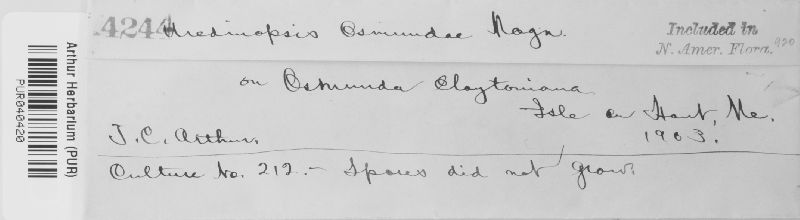 4244 Uredinopsis Osmundae Magn.
Included in
N. Amer. Flora. 920
on Osmunda Claytoniana
Isle au Haut, Me.
J. C. Arthur. 1903.
Culture No. 212. – Spores did not grow.
Arthur Herbarium (PUR)
PUR040420